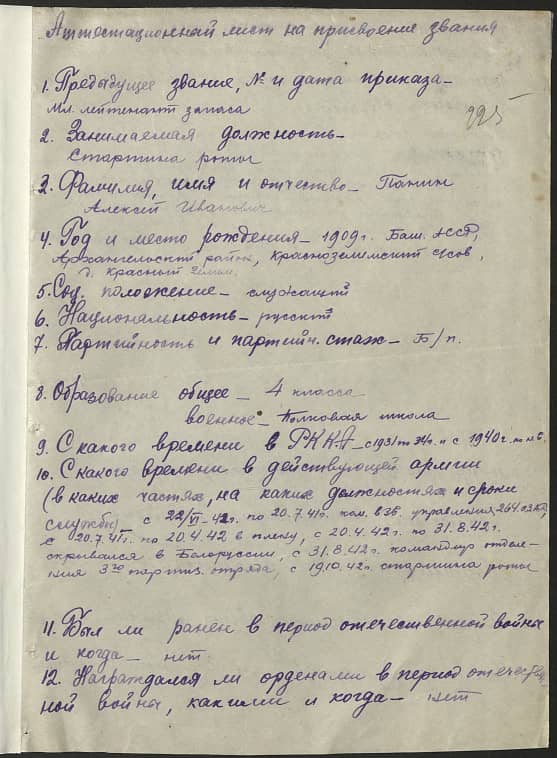 Аттестационный лист на присвоение звания
1. Предыдущее звание, № и дата приказа –
Мл. лейтенант запаса
225
2. Занимаемая должность –
старшина роты
3. Фамилия, имя и отчество – Панин
Алексей Иванович
4. Год и место рождения – 1909 г. Баш. АССР,
Архангельский район, Краснозелимский с/сов,
д. Красный Зелим.
5. Соц. положение – служащий
6. Национальность – русский
7. Партийность и партийн. стаж – Б/п.
8. Образование общее – 4 класса
военное – Полковая школа
9. С какого времени в РККА – с 1931 по 34 г. и с 1940 г. по н.в.
10. С какого времени в действующей армии
(в каких частях, на каких должностях и сроки
службы) с 22/VI-41г. по 20.7.41г. ком. взв. управления 264
с 20.7.41г. по 20.4.42 в плену, с 20.4.42 по 31.8.42г.
скрывался в Белоруссии, с 31.8.42г. командир отделе-
ния 3го партиз. отряда, с 19.10.42г. старшина роты
11. Был ли ранен в период отечественной войны
и когда – нет.
12. Награждался ли орденами в период отечествен-
ной война, какими и когда – нет